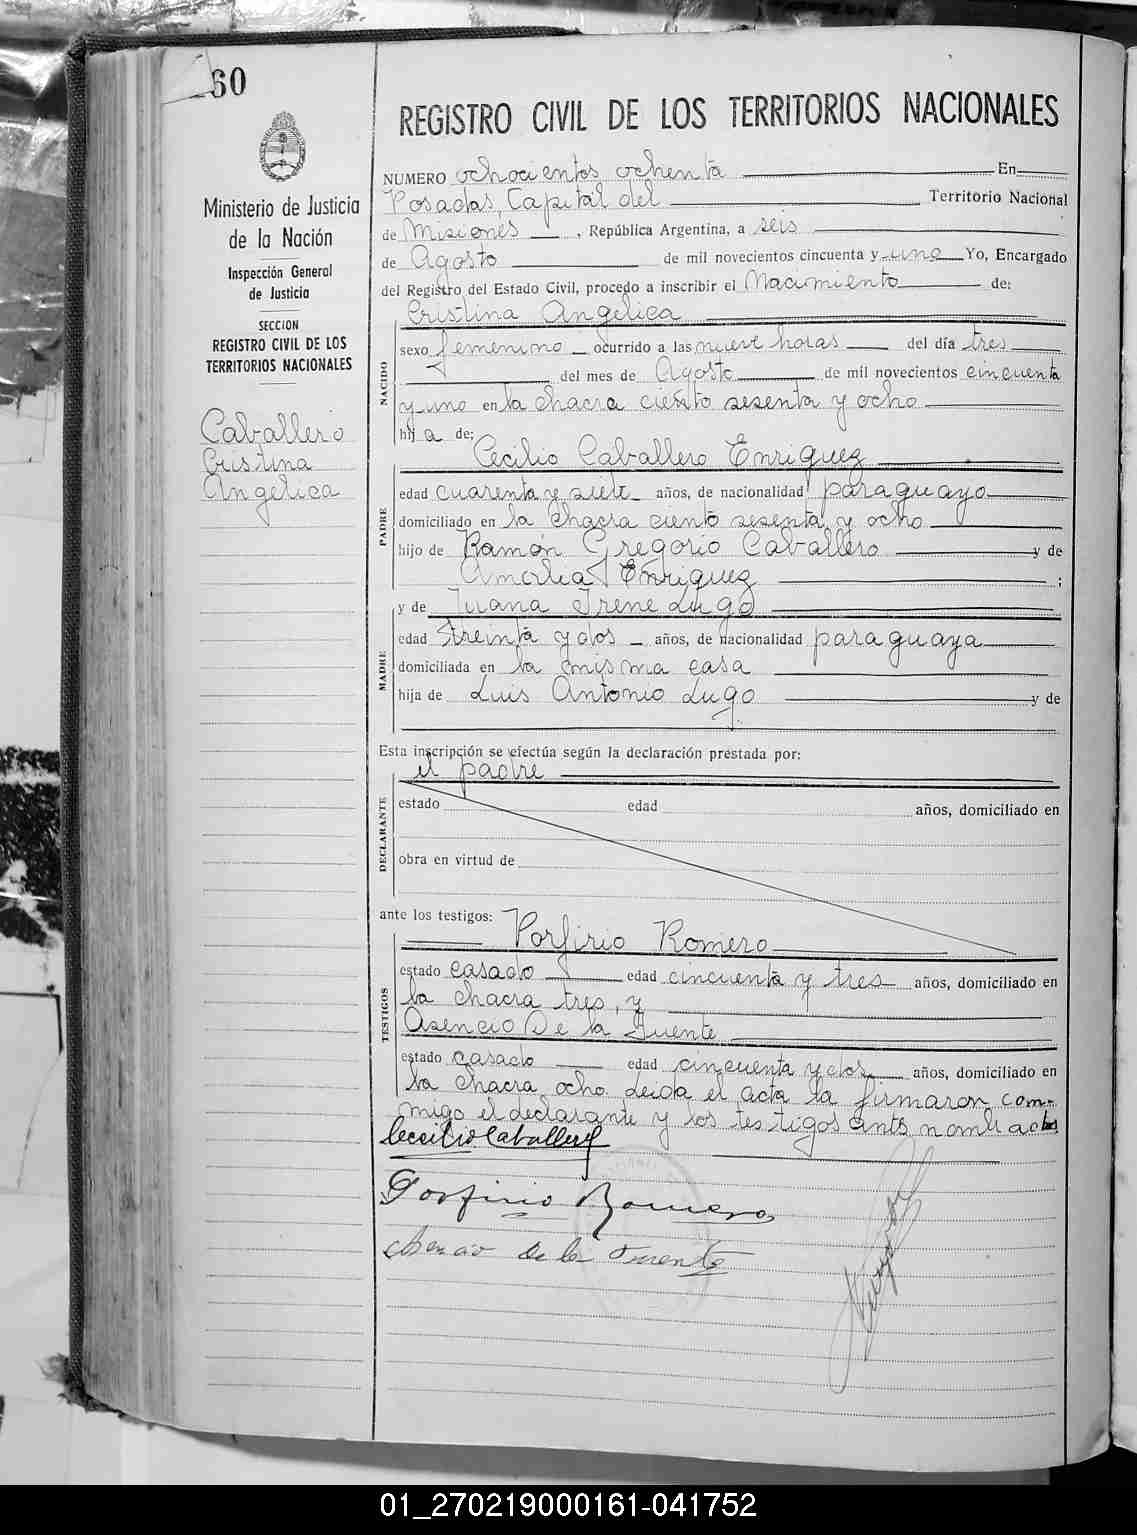 60
Ministerio de Justicia
de la Nación
Inspección General
de Justicia
SECCION
REGISTRO CIVIL DE LOS
TERRITORIOS NACIONALES
Caballero
Cristina
Angelica
REGISTRO CIVIL DE LOS TERRITORIOS NACIONALES
NUMERO ochocientos ochenta En
Posadas, Capital del Territorio Nacional
de Misiones, República Argentina, a seis
de Agosto de mil novecientos cincuenta y uno Yo, Encargado
del Registro del Estado Civil, procedo a inscribir el Nacimiento de:
Cristina Angelica
NACIDO
sexo femenino ocurrido a las nueve horas del día tres
del mes de Agosto de mil novecientos cincuenta
y uno en la chacra ciento sesenta y ocho
hija de:
Cecilio Caballero Enriquez
PADRE
edad cuarenta y siete años, de nacionalidad paraguayo
domiciliado en la chacra ciento sesenta y ocho
hijo de Ramón Gregorio Caballero y de
Amalia Enriquez ;
y de Juana Irene Lugo
MADRE
edad treinta y dos años, de nacionalidad paraguaya
domiciliada en la misma casa
hija de Luis Antonio Lugo y de
Esta inscripción se efectúa según la declaración prestada por:
el padre
DECLARANTE
estado edad años, domiciliado en
obra en virtud de
ante los testigos: Porfirio Romero
TESTIGOS
estado casado edad cincuenta y tres años, domiciliado en
la chacra tres, y
Asencio De la Fuente
estado casado edad cincuenta y dos años, domiciliado en
la chacra ocho. Leida el acta la firmaron con-
migo el declarante y los testigos antes nombrados
Cecilio Caballero
Porfirio Romero
Asencio de la Fuente
01_270219000161-041752